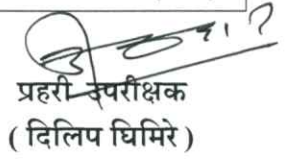 प्रहरी उपरीक्षक
( दिलिप घिमिरे )